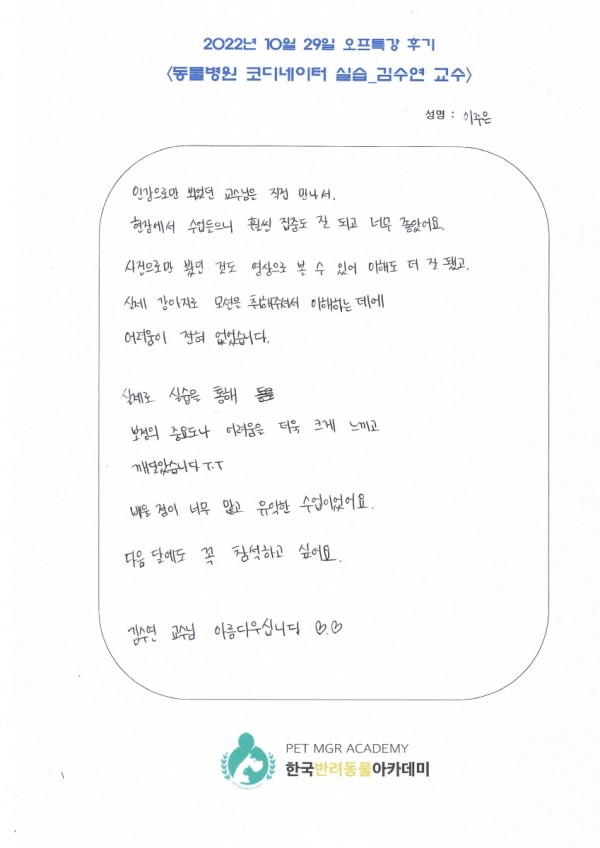 2022년 10월 29일 오프특강 후기
<동물병원 코디네이터 실습_김수연 교수>
성명 : 이주은
인강으로만 뵈었던 교수님은 직접 만나서.
현장에서 수업들으니 훨씬 집중도 잘 되고 너무 좋았어요.
사진으로만 봤던 것도 영상으로 볼 수 있어 이해도 더 잘 됐고.
실제 강아지로 모션을 취해주셔서 이해하는 데에
어려움이 전혀 없었습니다.
실제로 실습을 통해
보정의 중요도나 어려움은 더욱 크게 느끼고
깨달았습니다 T.T
배울 점이 너무 많고 유익한 수업이었어요.
다음 달에도 꼭 참석하고 싶어요.
김수연 교수님 아름다우십니다 ♡.♡
PET MGR ACADEMY
한국반려동물아카데미